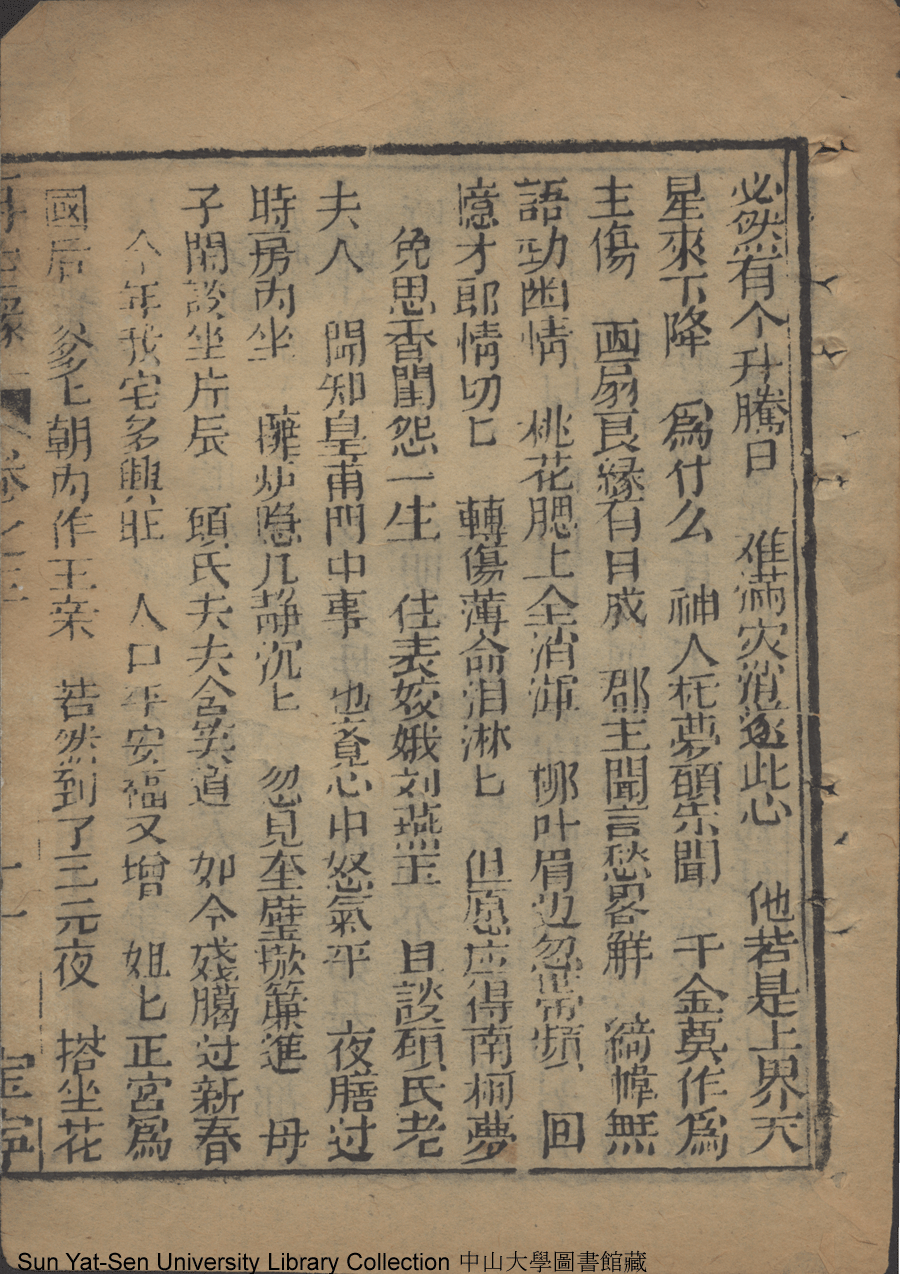 必然有个升騰日　难滿灾消遂此心　他若是上界天
星來下降　為什么　神人托夢頋宗聞　千金莫作為
主傷　画扇良緣有日成　郡主聞言愁畧觧　綺幃無
語動幽情　桃花腮上全消渾　柳叶眉边忽帶頻　回
憶才郎情切匕　轉傷薄命泪淋匕　但愿应得南柯夢
免思香閨怨一生　住表姣娥刘燕玉　且談碩氏老
夫人　聞知皇甫門中事　也竟心中怒氣平　夜膳过
時房内坐　擁炉隐几静沉匕　忽見奎璧揿簾進　母
子閑談坐片辰　頭氏夫夫含笑道　如今殘臈过新春
今年我宅多興旺　人口平安福又增　姐匕正宮為
國后　爹匕朝内作王亲　若然到了三元夜　搭坐花
再生緣　卷之三　十一　宝寧
Sun Yat-Sen University Library Collection 中山大學圖書館藏